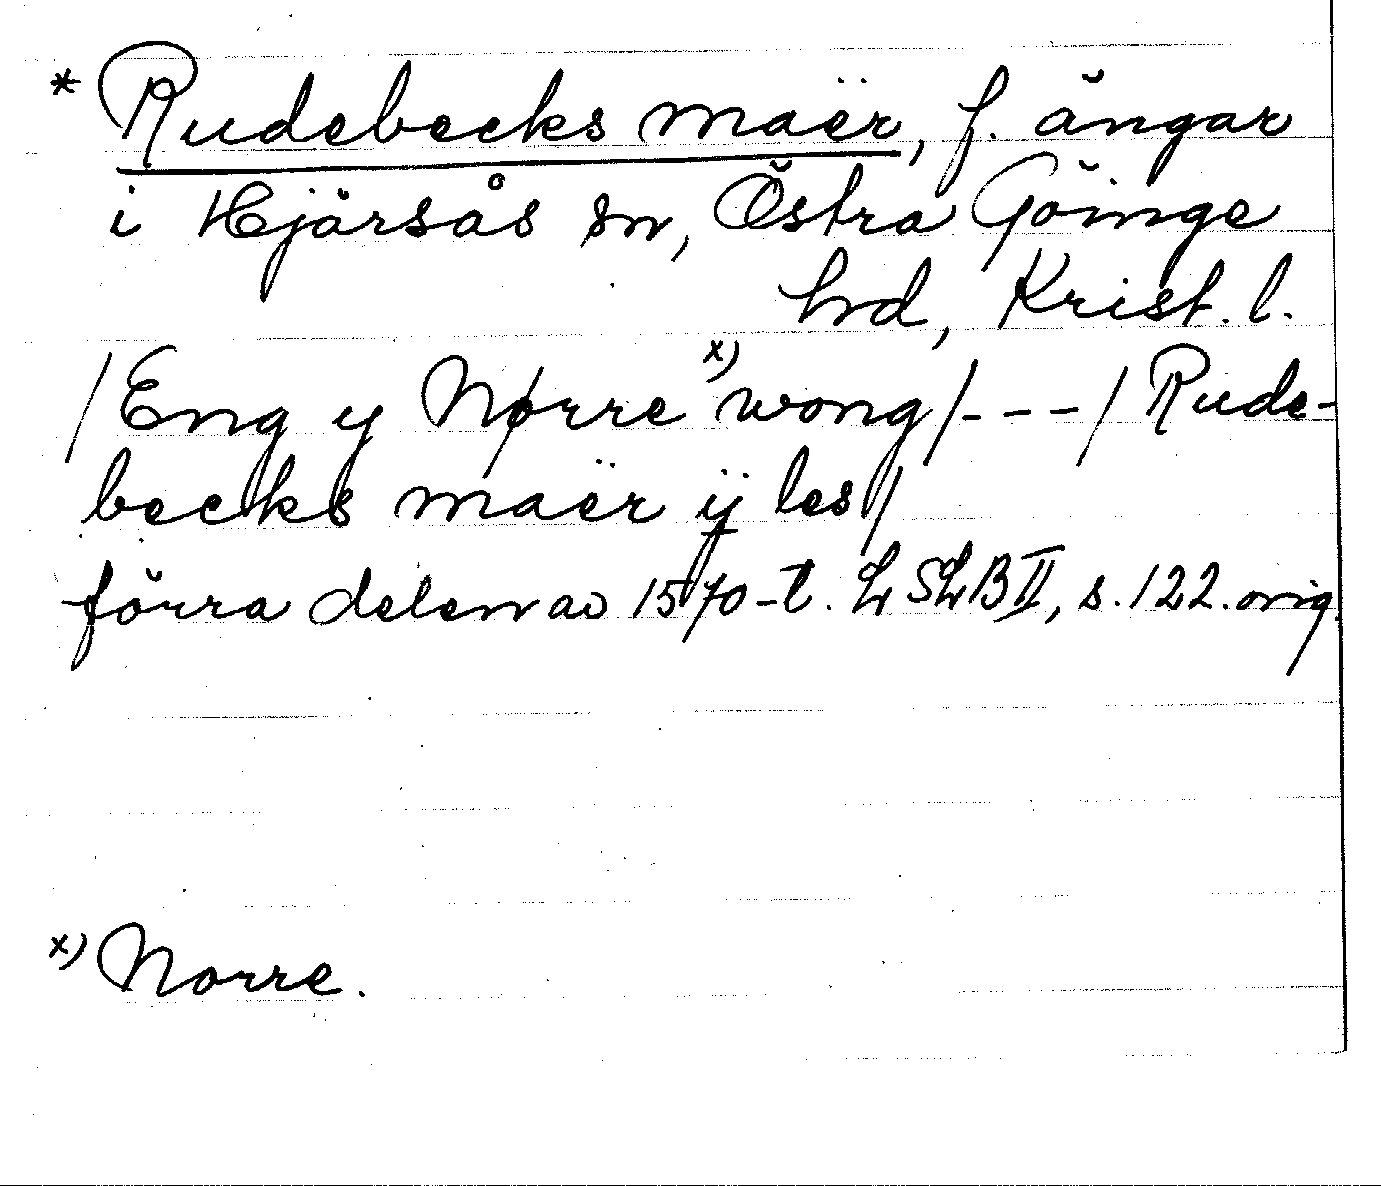 * Rudebecks maër, f. ängar
i Hjärsås sn, Östra Göinge
hd, Krist. l.
/Eng y Nørre x) wong/---/Rude-
becks maër ÿ les//
förra delen av 1570-t. LSLB II, s. 122. orig.
x) Norre.